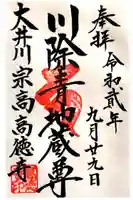 奉拝 令和弐年
九月廿九日
川除地蔵尊
大井川 宗高 高徳寺